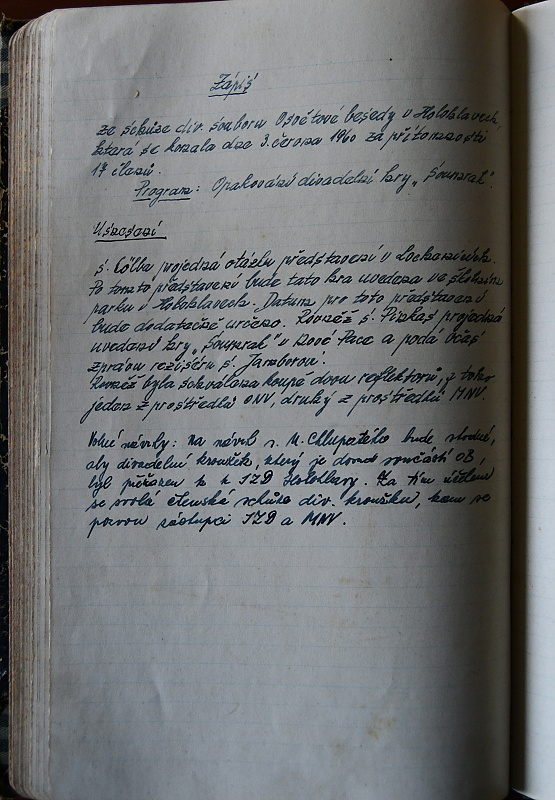 Zápis
ze schůze div. souboru Osvětové besedy v Holohlavech,
která se konala dne 3. června 1960 za přítomnosti
17 členů.
Program: Opakování divadelní hry „Soumrak“.
Usnesení
s. Cölba projedná otázku představení v Lochenicích.
Po tomto představení bude tato hra uvedena ve školním
parku v Holohlavech. Datum pro toto představení
bude dodatečně určeno. Rovněž s. projedná
uvedení hry „Soumrak“ v Nové Pace a podá včas
zprávu režiséru s. Jamborovi.
Rovněž byla schválena koupě dvou reflektorů, z toho
jeden z prostředků ONV, druhý z prostředků MNV.
Volné návrhy: Na návrh s. M. Chlupatého bude vhodné,
aby divadelní kroužek, který je dosud součástí OB,
byl přiřazen k JZD Holohlavy. Za tím účelem
se svolá členská schůze div. kroužku, kam se
pozvou zástupci JZD a MNV.